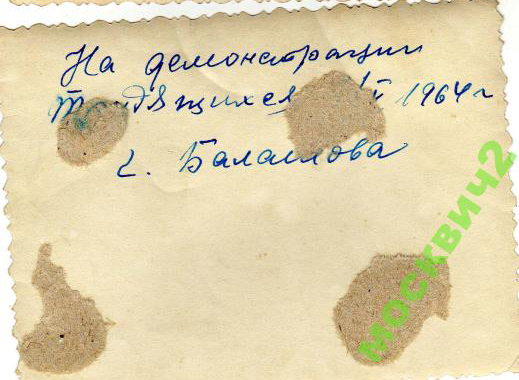 На демонстрации
трудящихся 1964 г
г. Балашова
москвич2